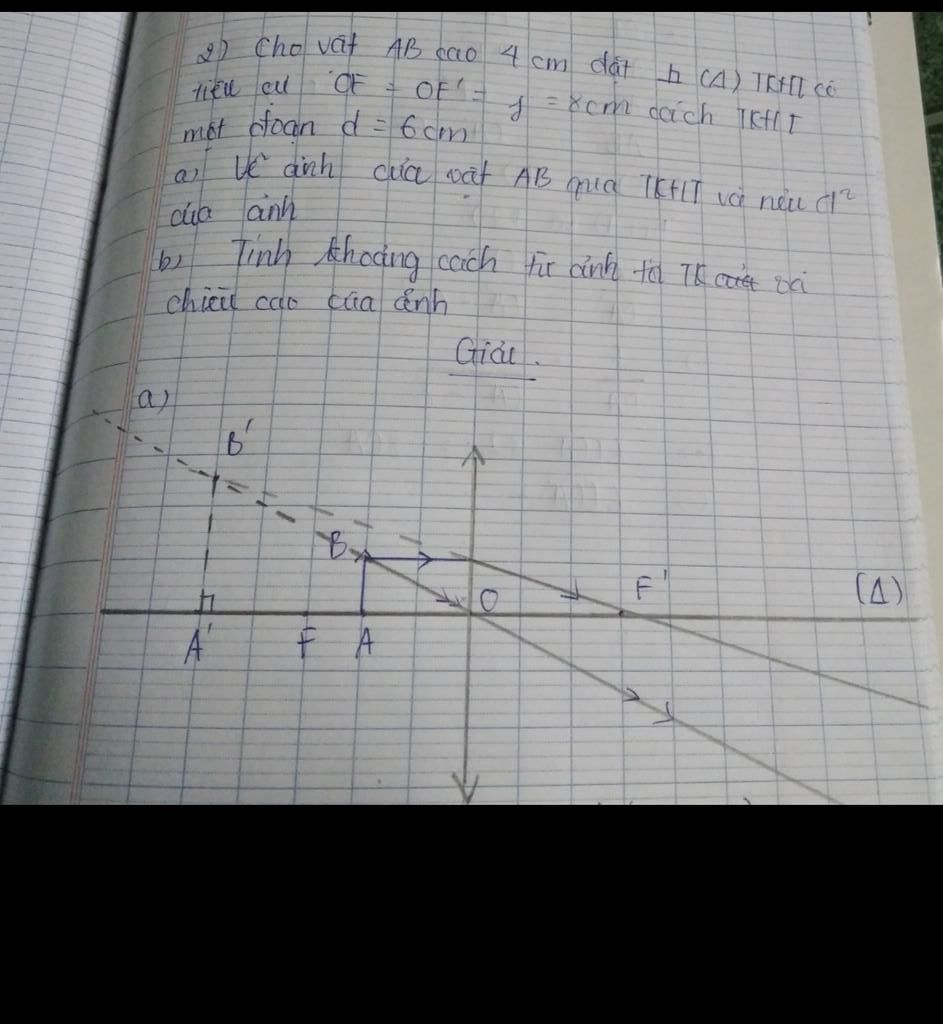 2) Cho vật AB cao 4 cm đặt ⊥ (Δ) TKHT có
tiêu cự OF = OF' = f = 8cm cách TKHT
một đoạn d = 6 cm
a) Vẽ ảnh của vật AB qua TKHT và nêu đ²
của ảnh
b) Tính khoảng cách từ ảnh tới TK và
chiều cao của ảnh
Giải.
a)
B'
B
F'
(Δ)
O
A'
F
A